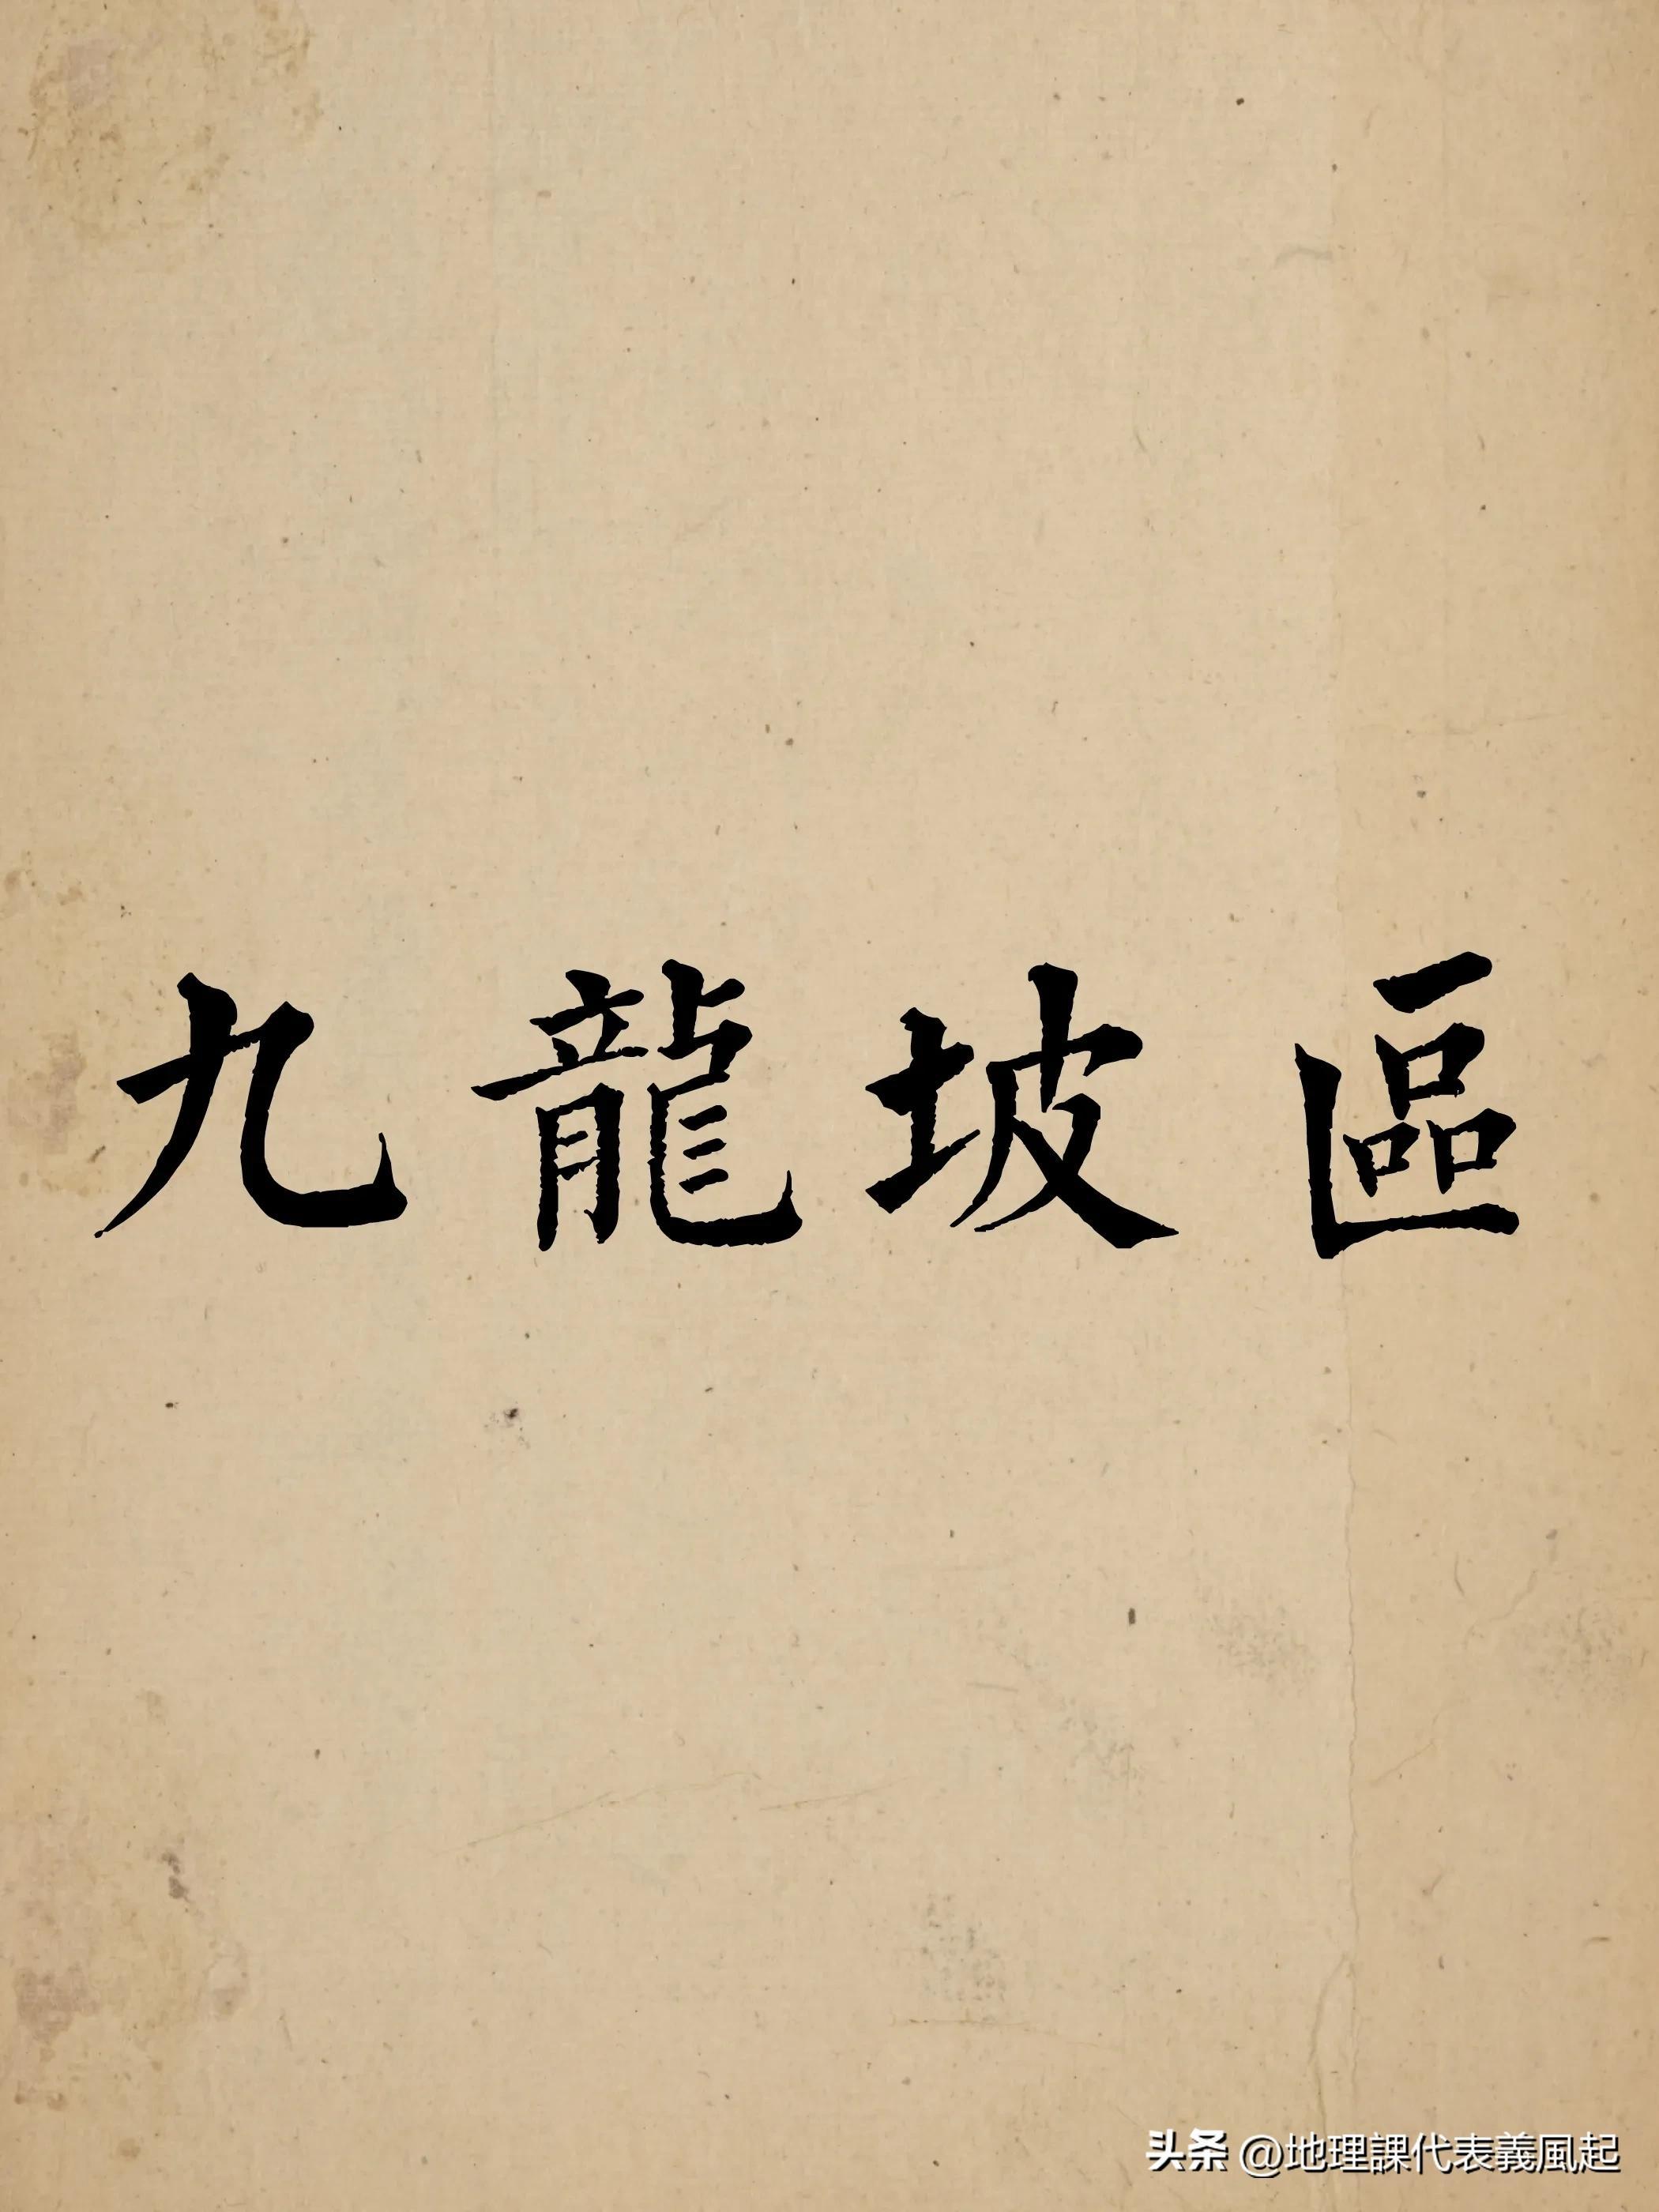 九龍坡區
头条 @地理課代表義風起